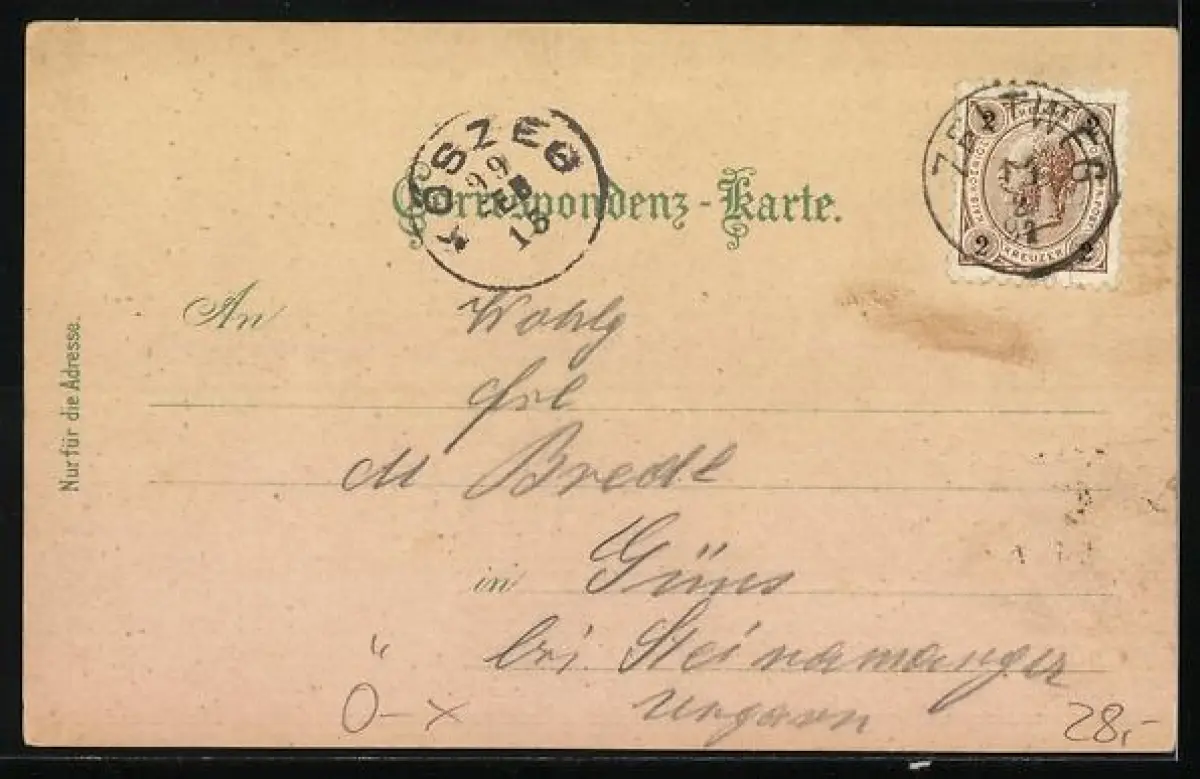 Correspondenz-Karte.
KŐSZEG
99
FEB
15
ZELTWEG
2 2
KREUZER
2 2
An Wohlg
Frl
M Bredl
in Güns
bei Steinamanger
Ungarn
Nur für die Adresse.
0-x
28,-